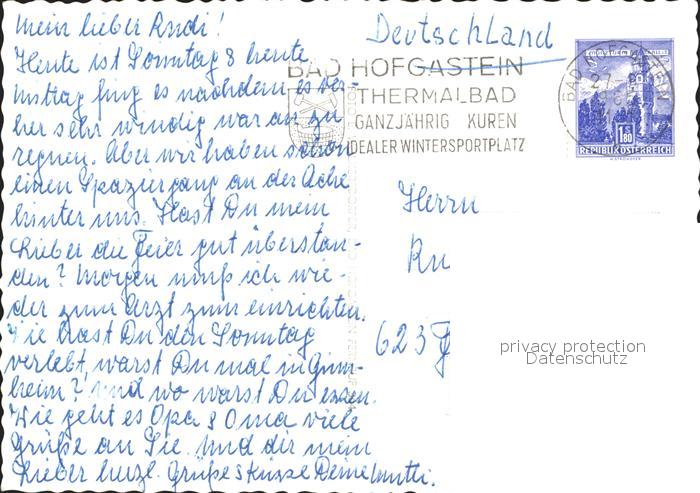 Mein lieber Rudi!
Heute ist Sonntag & heute
Mittag fing es nachdem es vor-
her sehr windig war an zu
regnen. Aber wir haben schon
einen Spaziergang an der Ache
hinter uns. Hast Du mein
Lieber die Feier gut überstan-
den? Morgen muß ich wie-
der zum Arzt zum einrichten.
Wie hast Du den Sonntag
verlebt, warst Du mal in Ginn-
heim? Und wo warst Du essen.
Wie geht es Opa & Oma viele
Grüße an Sie. Und dir mein
Lieber herzl. Grüße & Küsse Deine Mutti.
Deutschland
BAD HOFGASTEIN
THERMALBAD
GANZJÄHRIG KUREN
IDEALER WINTERSPORTPLATZ
BAD HOFGASTEIN
27
S 1.80
REPUBLIK ÖSTERREICH
Herrn
Ru
623
privacy protection
Datenschutz